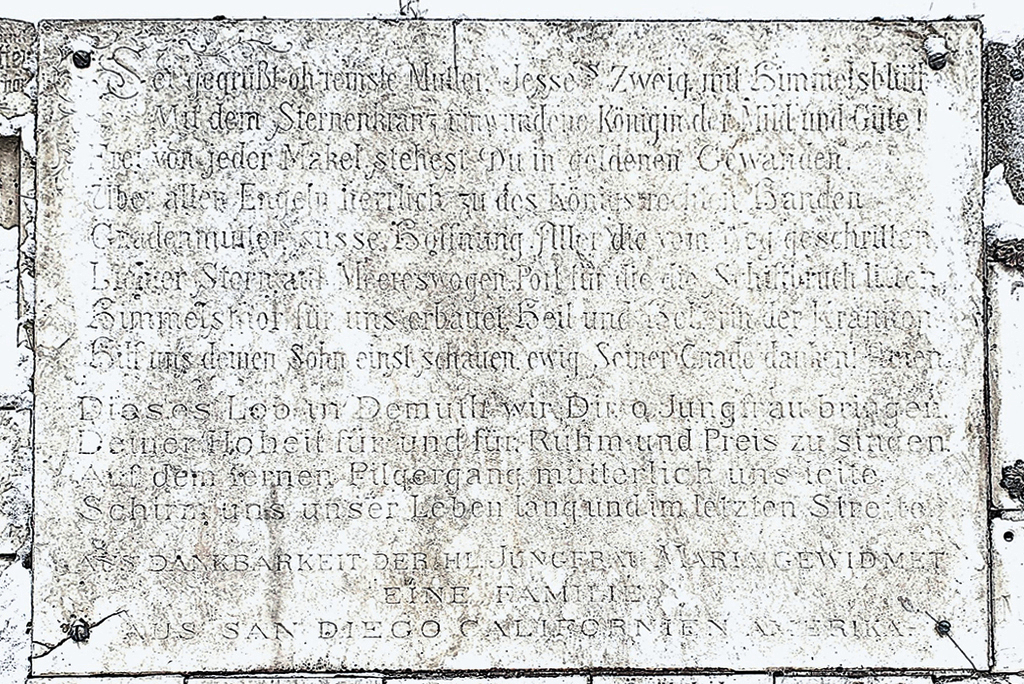 Sei gegrüßt oh reinste Mutter, Jesse's Zweig mit Himmelsblüte
Mit dem Sternenkranz umwundene Königin der Mild und Güte!
Frei von jeder Makel stehest Du in goldenen Gewanden,
Über allen Engeln herrlich zu des Königs rechten Handen
Gnadenmutter, süsse Hoffnung Aller die vom Weg geschritten,
Lichter Stern auf Meereswogen, Port für die die Schiffbruch litten,
Himmelshof für uns erbauet, Heil und der Kranken.
Hilf uns deinen Sohn einst schauen, ewig Seiner Gnade danken! Amen.
Dieses Lob in Demuth wir Dir o Jungfrau bringen,
Deiner Hoheit für und für, Ruhm und Preis zu singen.
Auf dem fernen Pilgergang mütterlich uns leite,
Schirm uns unser Leben lang und im letzten Streite.
AUS DANKBARKEIT DER HL. JUNGFRAU MARIA GEWIDMET
EINE FAMILIE
AUS SAN DIEGO CALIFORNIEN AMERIKA.